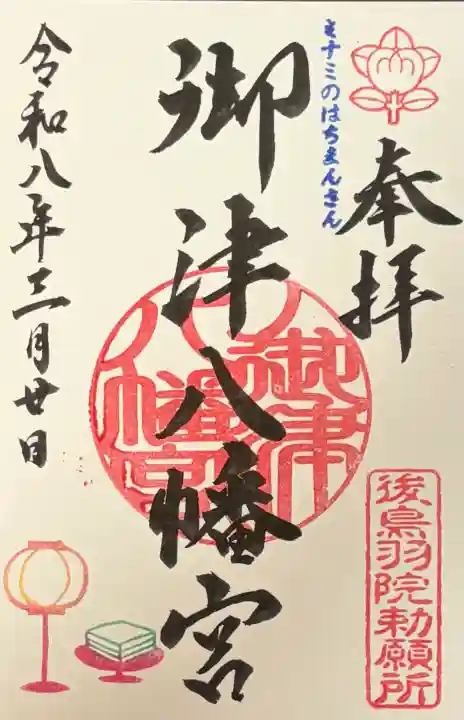 奉拝
ミナミのはちまんさん
御津八幡宮
御津
八幡宮
後鳥羽院勅願所
令和八年三月廿日